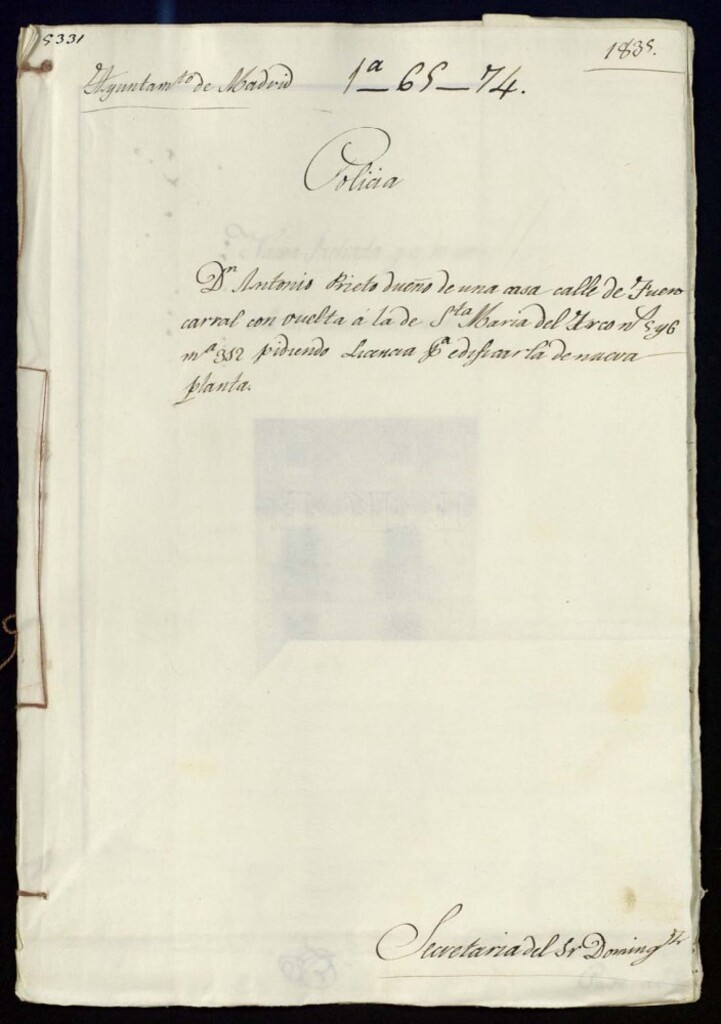 5331
1835.
Ayuntam.to de Madrid
1ª-65-74.
Policia
Dn Antonio Prieto dueño de una casa calle de Fuen
carral con vuelta á la de Sta Maria del Arco nos 5 y 6
mª 352 pidiendo Licencia pª edificarla de nueva
planta.
Secretaria del Sr Domingz